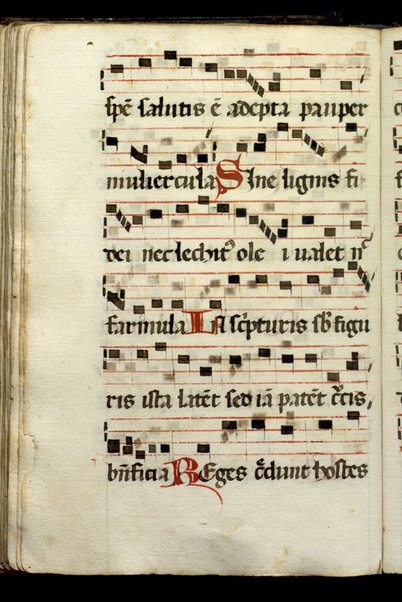 spē salutis ē adepta pauper
muliercula Sine lignis fi
dei nec lechitꝰ ole i ualet nr̄
farinula In sc̄pturis sb̄ figu
ris ista latēt sed iā patēt cr̄cis
bn̄ficia REges cēdunt hostes